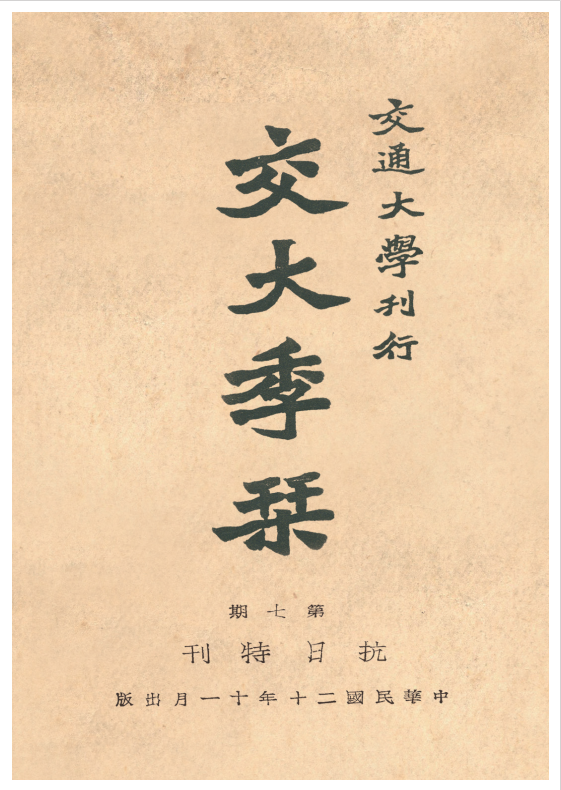 交通大學刊行
交大季栞
第七期
抗日特刊
中華民國二十年十一月出版